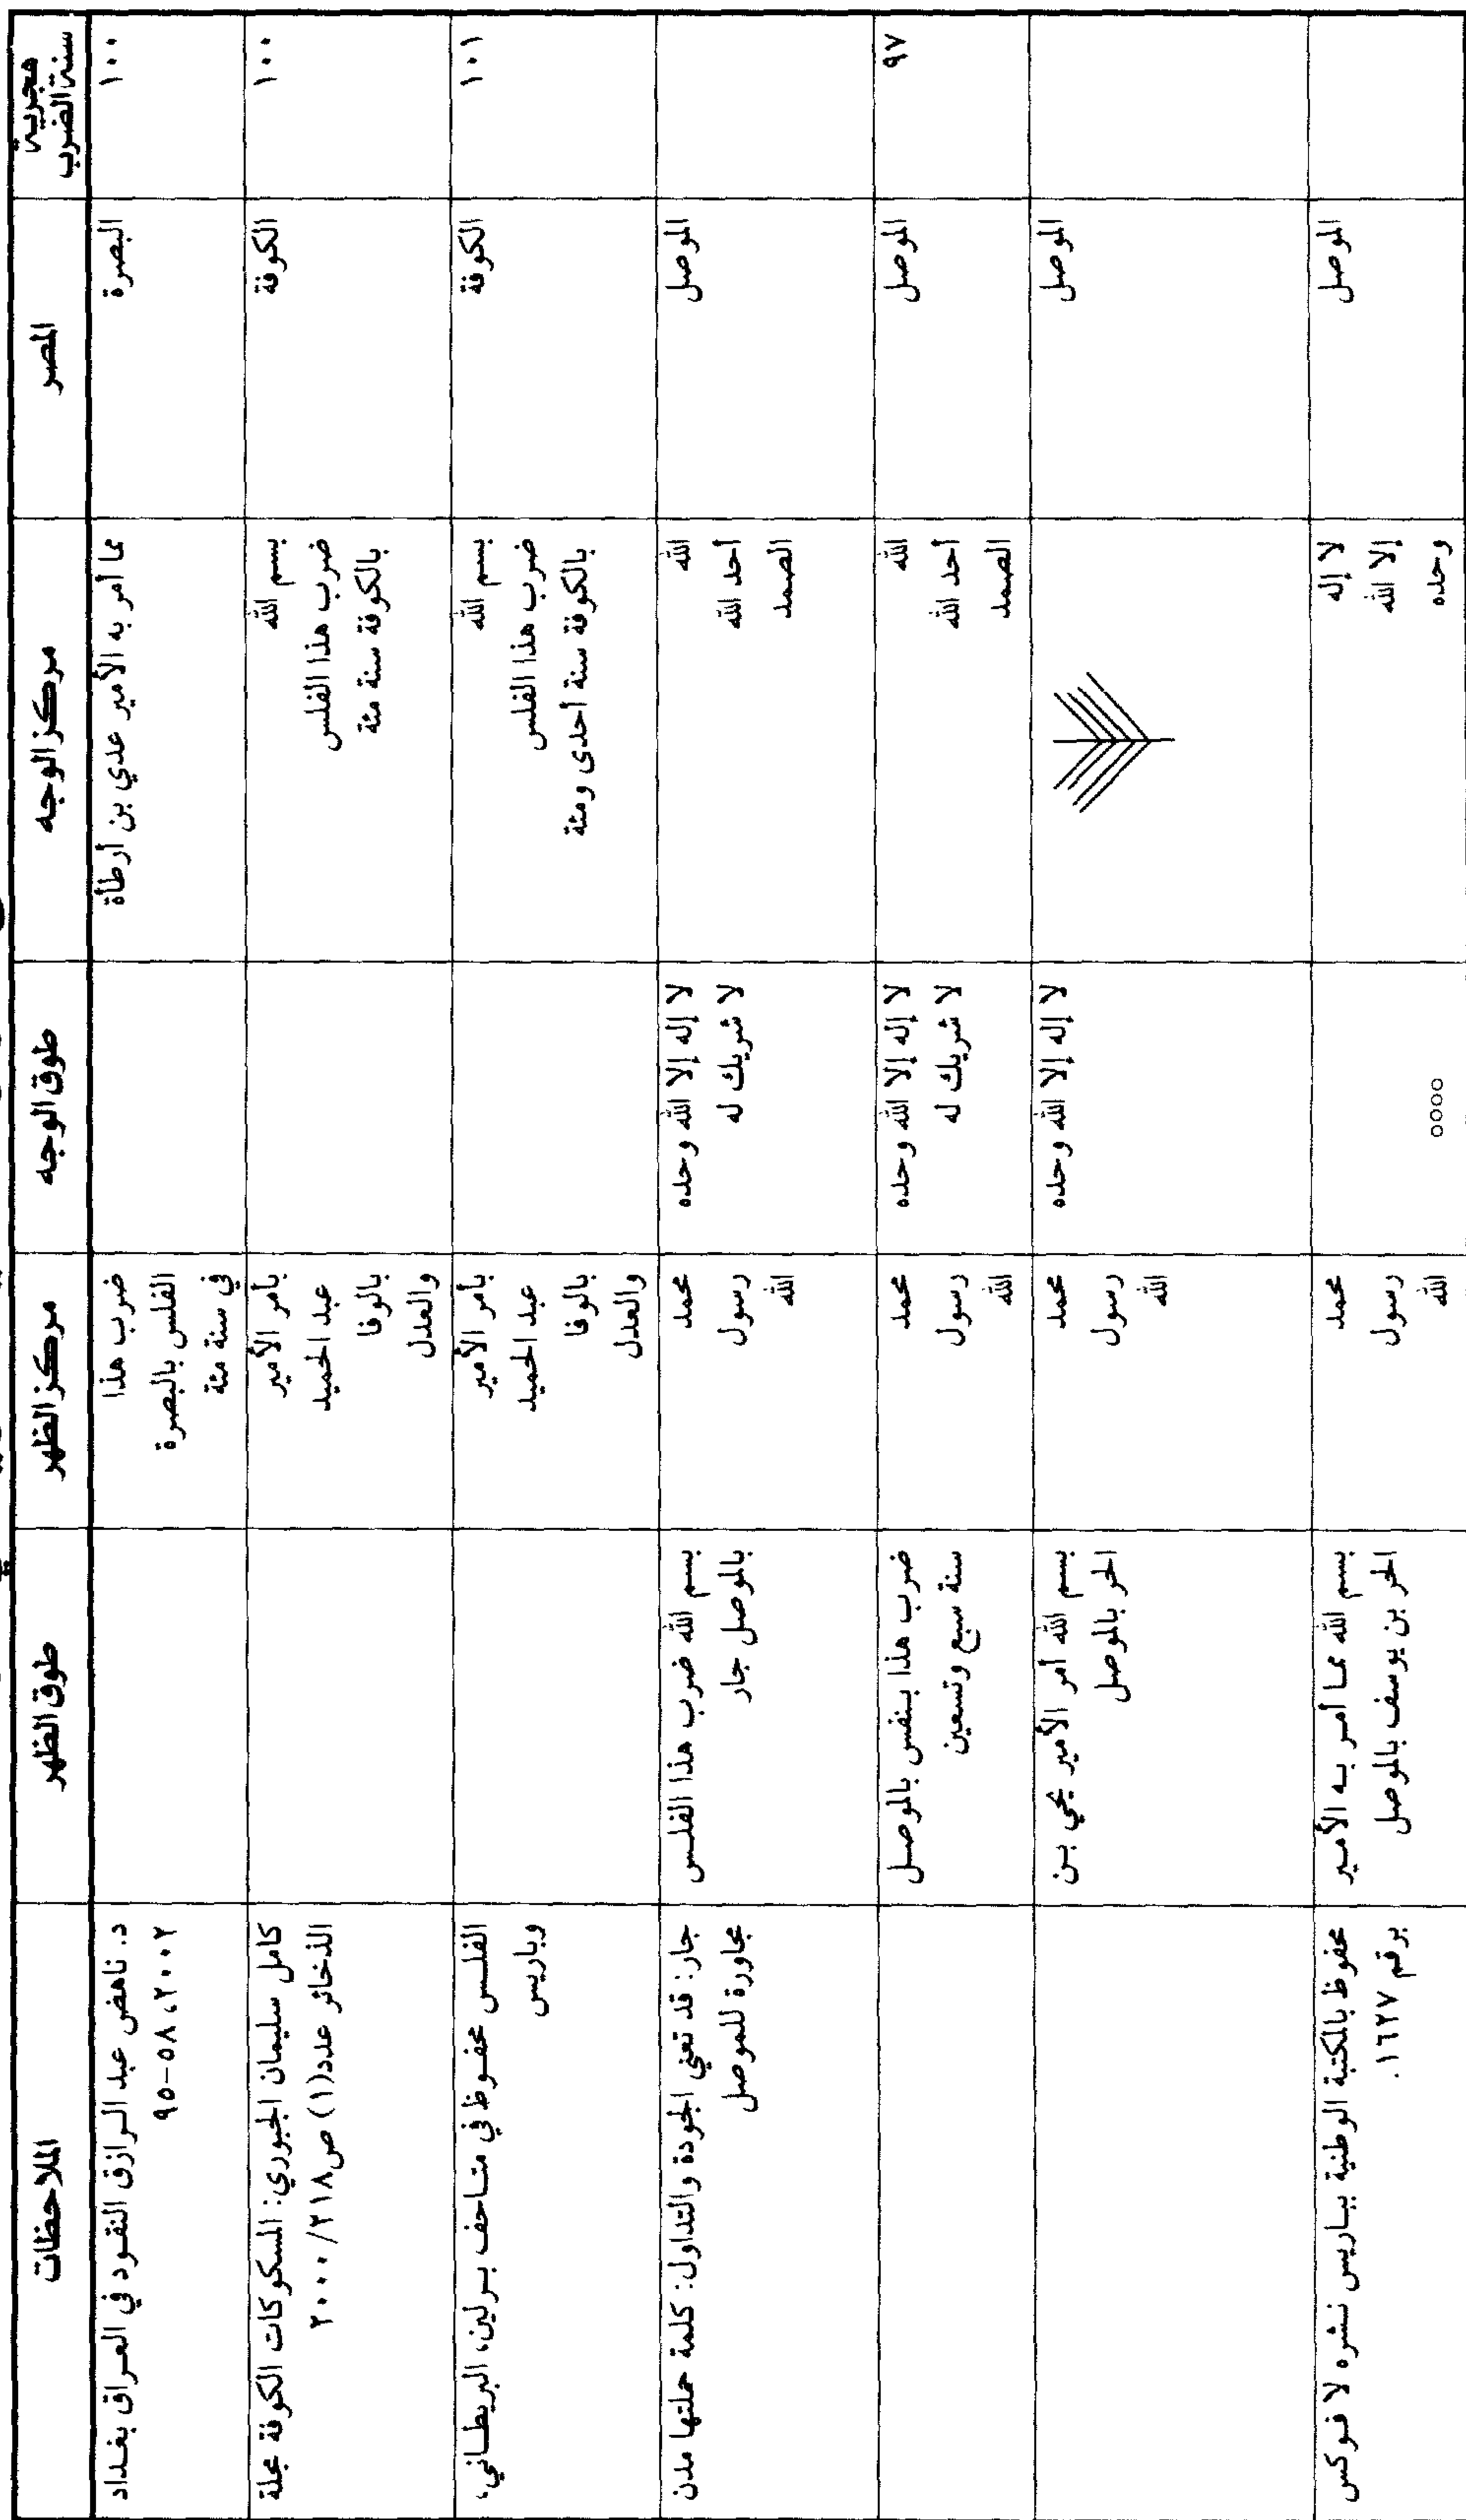 سنة الضرب هجرية
المصر
مركز الوجه
طوق الوجه
مركز الظهر
طوق الظهر
الملاحظات
١٠٠
البصرة
مما أمر به الأمير عدي بن أرطأة
ضرب هذا
الفلس بالبصرة
في سنة مئة
د. ناهض عبد الرازق النقود في العراق بغداد
٢٠٠٢، ٥٨-٩٥
١٠٠
الكوفة
بسم الله
ضرب هذا الفلس
بالكوفة سنة مئة
بأمر الأمير
عبد الحميد
بالوفا
والعدل
كامل سليمان الجبوري: المسكوكات الكوفة مجلة
الذخائر عدد(١) ص٢١٨/ ٢٠٠٠
١٠١
الكوفة
بسم الله
ضرب هذا الفلس
بالكوفة سنة أحدى ومئة
بأمر الأمير
عبد الحميد
بالوفا
والعدل
الفلس محفوظ في متاحف برلين، البريطاني،
وباريس
الموصل
الله
أحد الله
الصمد
لا إله إلا الله وحده
لا شريك له
محمد
رسول
الله
بسم الله ضرب هذا الفلس
بالموصل جار
جار: قد تعني الجودة والتداول: كلمة حملتها مدن
مجاورة للموصل
٩٧
الموصل
الله
أحد الله
الصمد
لا إله إلا الله وحده
لا شريك له
محمد
رسول
الله
ضرب هذا بنفس بالموصل
سنة سبع وتسعين
الموصل
لا إله إلا الله وحده
محمد
رسول
الله
بسم الله أمر الأمير يحي بن
الحر بالموصل
الموصل
لا إله
إلا الله
وحده
٥٥٥٥
محمد
رسول
الله
بسم الله مما أمر به الأمير
الحر بن يوسف بالموصل
محفوظ بالمكتبة الوطنية بباريس نشره لا فوكس
برقم ١٦٢٧.